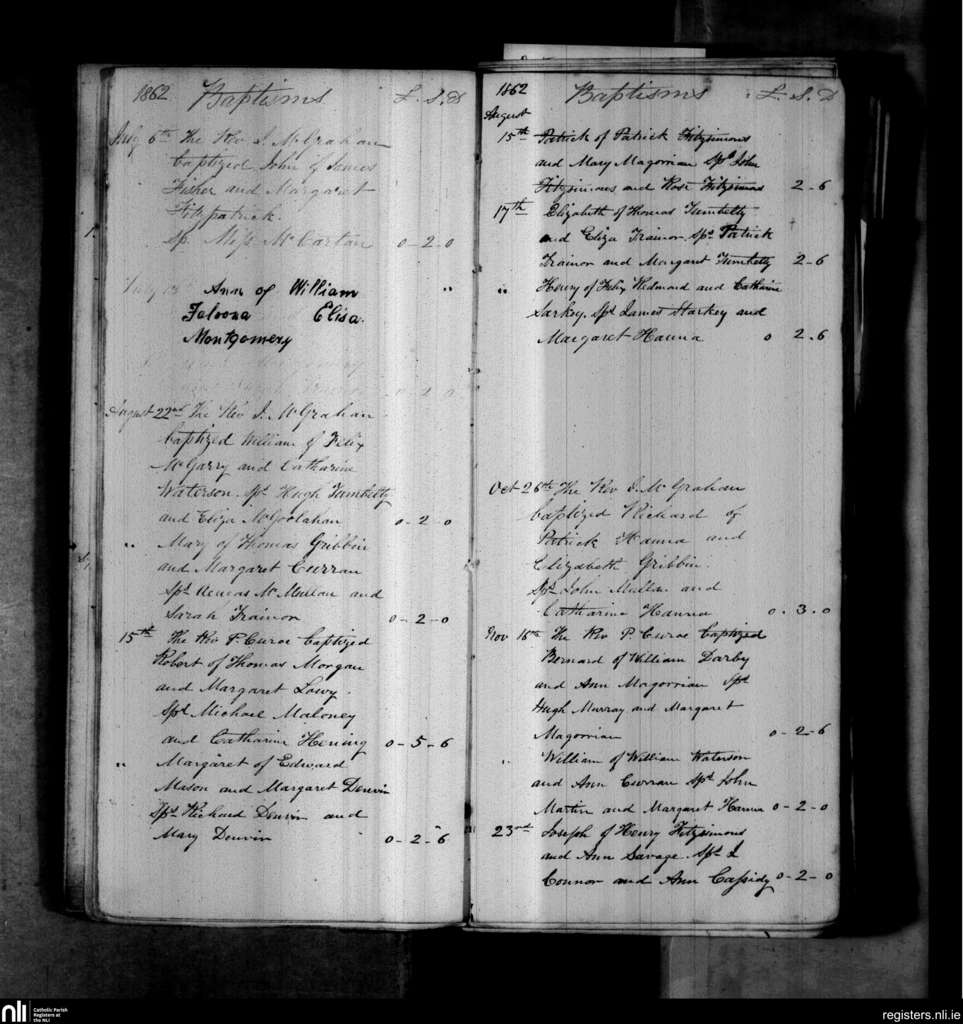 1862 Baptisms £. S. D
July 6th The Rev J. McGrahan
baptized John of James
Fisher and Margaret
Fitzpatrick.
Sp. Miss McCartan 0-2-0
Ann of William "
Faloona Elisa.
Montgomery
August 22nd The Rev J. McGrahan
baptized William of Felix
McGarry and Catharine
Waterson. Sps Hugh Tumbelty
and Eliza McGoolahan 0-2-0
" Mary of Thomas Gribbin
and Margaret Curran
Sps McMullan and
Sarah Trainor 0-2-0
15th The Rev P. Curoe baptized
Robert of Thomas Morgan
and Margaret Lowry.
Sps Michael Maloney
and Catharine Hening 0-5-6
" Margaret of Edward
Mason and Margaret Denvin
Sps Richard Denvin and
Mary Denvin 0-2-6
1862 Baptisms £. S. D
August
15th Patrick of Patrick Fitzsimons
and Mary Magorrian Sps John
Fitzsimons and Rose Fitzsimons 2-6
17th Elizabeth of Thomas Tumbelty
and Eliza Trainor Sps Patrick
Trainor and Margaret Tumbelty 2-6
" Henry of Felix Redmond and Catharine
Sarkey. Sps James Starkey and
Margaret Hanna 0 2-6
Oct 26th The Rev J. McGrahan
baptized Richard of
Patrick Hanna and
Elizabeth Gribbin.
Sps John Mullan and
Catharine Hanna 0.3.0
Nov 16th The Rev P Curoe baptized
Bernard of William Darby
and Ann Magorrian Sps
Hugh Murray and Margaret
Magorrian 0-2-6
" William of William Waterson
and Ann Curran Sps John
Martin and Margaret Hanna 0-2-0
23rd Joseph of Henry Fitzsimons
and Ann Savage. Sps J
Connor and Ann Cassidy 0-2-0
nli Catholic Parish
Registers at
the NLI
registers.nli.ie